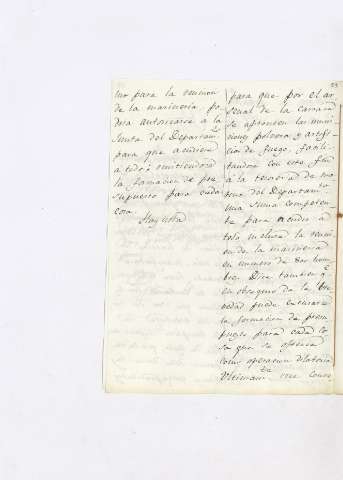 nir para la reunion
de la marineria po
dra autorizarse a la
Junta del Departamto
para que atendiera
a todo omitiendose
la formacion de pre
supuesto para cada
cosa.
Hay una
para que por el ar
senal de la Carraca
se apronten las muni
ciones polvora y artifi
cios de fuego, facili
tandose con este fin
a la tesoreria de ma
rina del Departamto
una suma competen
te para atender a
todo inclusa la reuni
on de la marineria
en numero de 800 hom
bres. Dice tambien q.e
en obsequio de la bre
vedad puede escusarse
la formacion de presu
puestos para cada co
sa que se ofrezca
como operacion dilatoria
Ultimamte cree con